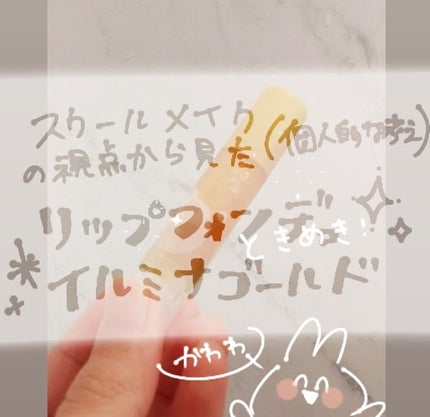 スクールメイク
の視点から見た(個人的な考え)
リップフォンデ
ときめき!
イルミナゴールド
かわわ